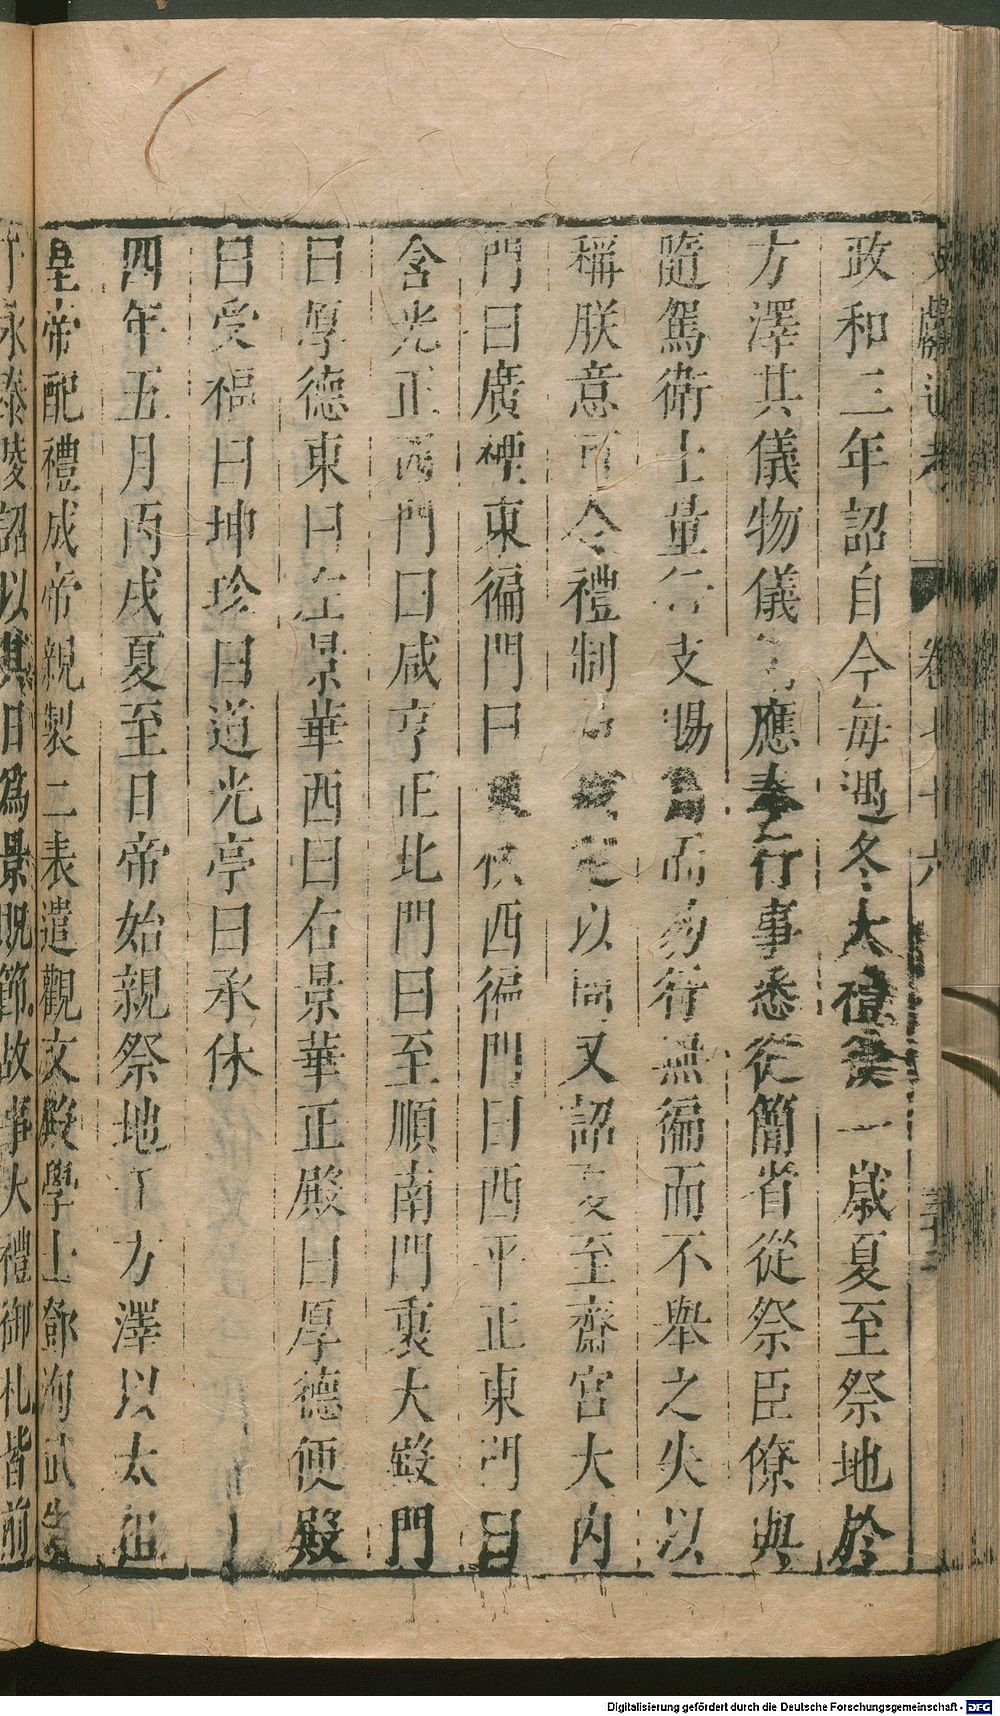 文獻通考 卷七十六
政和三年詔自今每遇冬大禮後一歲夏至祭地於
方澤其儀物儀衛應奉行事悉從簡省從祭臣僚與
隨駕衛士量行支賜爲而易行無徧而不舉之失以
稱朕意可令禮制局以聞又詔夏至齋宮大內
門曰廣禋東徧門曰東 西徧門曰西平正東門曰
含光正西門曰咸亨正北門曰至順南門裏大殿門
曰厚德東曰左景華西曰右景華正殿曰厚德便殿
曰受福曰坤珍曰道光亭曰承休
四年五月丙戌夏至日帝始親祭地于方澤以太祖
皇帝配禮成帝親製二表遣觀文殿學士鄧洵武
于永泰陵詔以其日爲景貺節故事大禮御札皆前
Digitalisierung gefördert durch die Deutsche Forschungsgemeinschaft - DFG